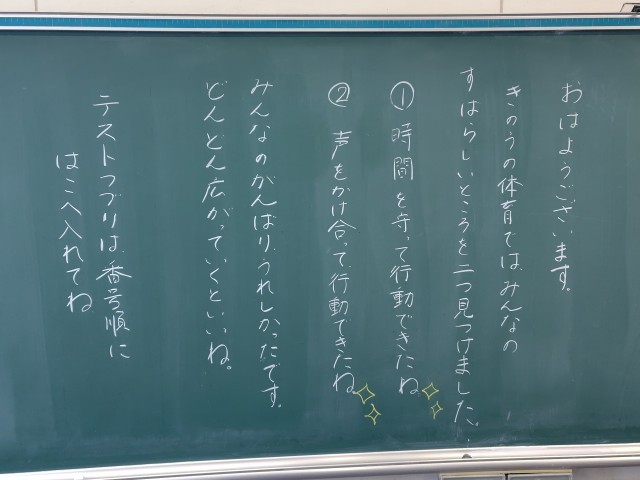 おはようございます。
きのうの体育では、みんなの
すばらしいところを二つ見つけました。
① 時間を守って行動できたね
② 声をかけ合って行動できたね
みんなのがんばり、うれしかったです。
どんどん広がっていくといいね。
テストつづりは、番号順に
はこへ入れてね